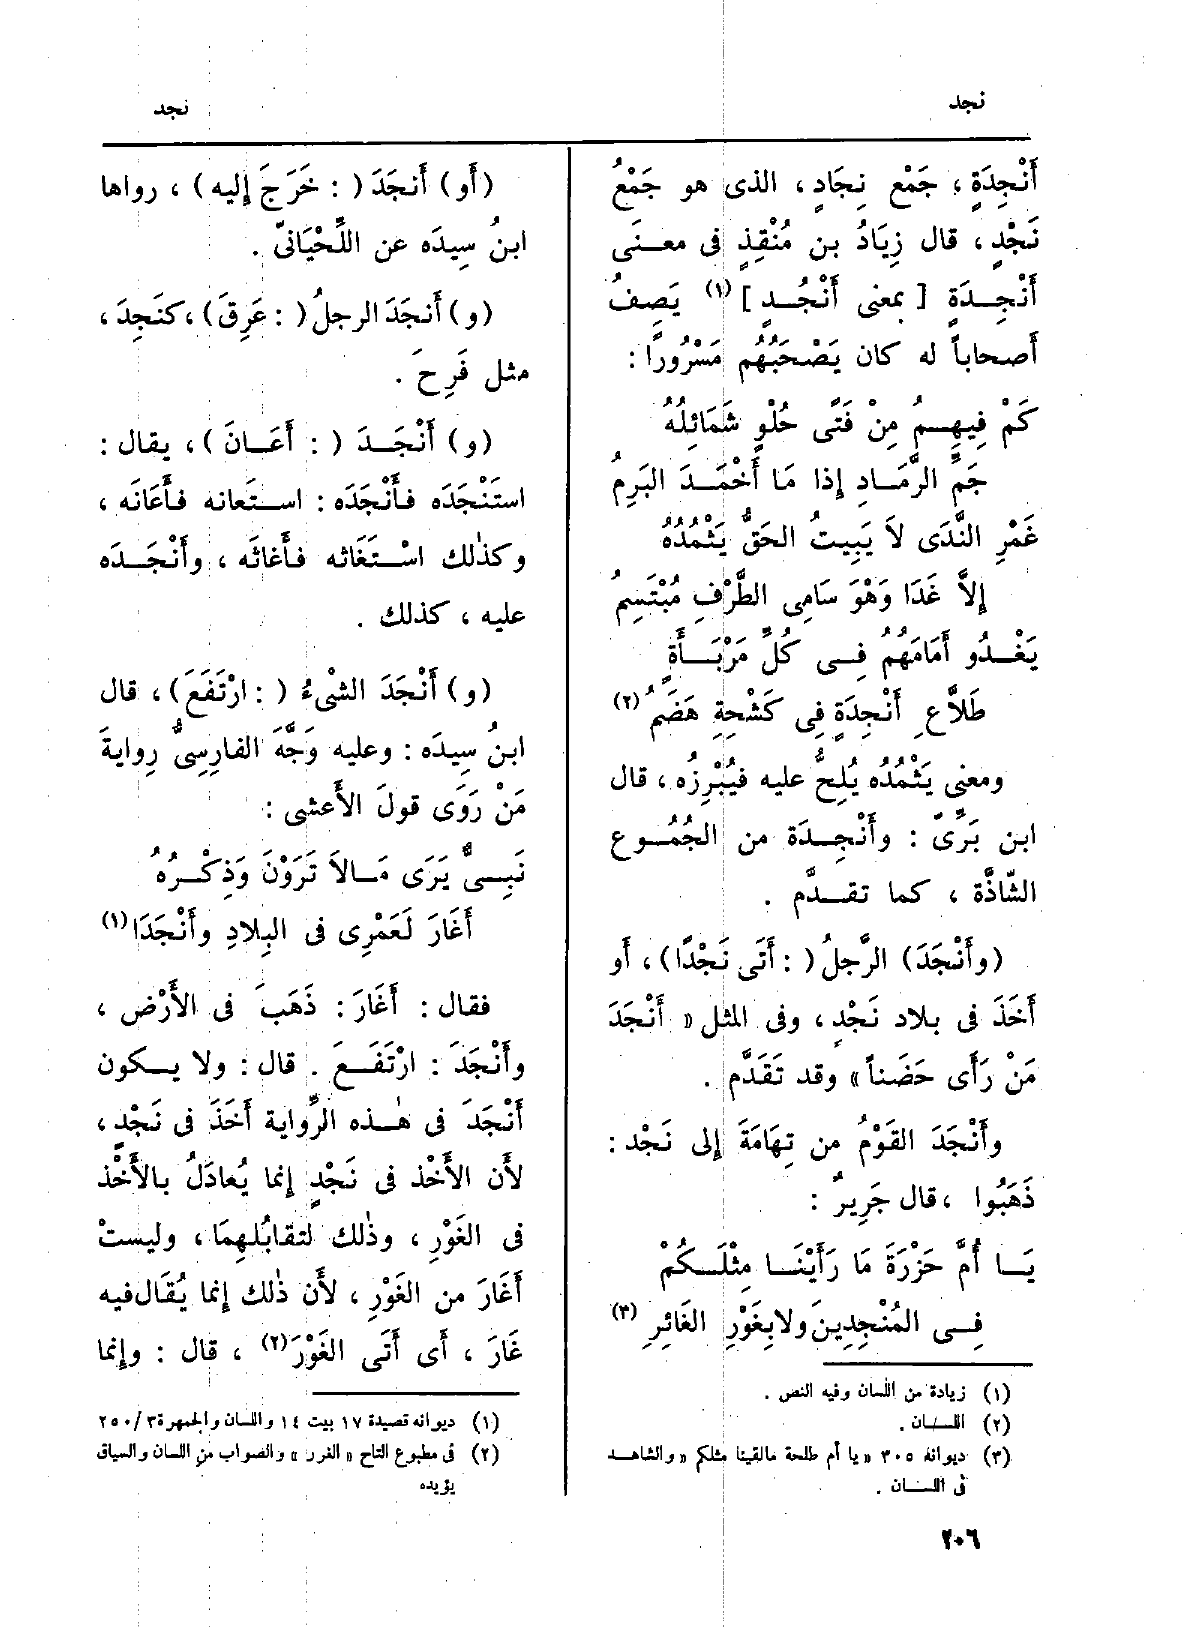 نجد
نجد
أَنْجِدَةٍ، جَمْع نِجَادٍ، الذى هو جَمْعُ
نَجْدٍ، قال زِيَادُ بن مُنْقِذٍ فى معـنَى
أَنْجِـدَةٍ [بمعنى أَنْجُـدٍ](١) يَصِفُ
أصحاباً له كان يَصْحَبُهُم مَسْرُورًا:
كَمْ فِيهِـمُ مِنْ فَتًى حُلْوٍ شَمَائِلُهُ
جَمِّ الرَّمَـادِ إذا مَا أَخْمَـدَ البَرِمُ
غَمْرِ النَّدَى لاَ يَبِيتُ الحَقُّ يَثْمُدُهُ
إلاَّ غَدَا وَهْوَ سَامِى الطَّرْفِ مُبْتَسِمُ
يَغْـدُو أَمَامَهُمُ فِـى كُلِّ مَرْبَـأَةٍ
طَلاَّعِ أَنْجِدَةٍ فِى كَشْحِهِ هَضَمُ(٢)
ومعنى يَثْمُدُه يُلِحُّ عليه فيُبْرِزُه، قال
ابن بَرِّىّ: وأَنْجِـدَة من الجُمُـوع
الشَّاذَّة، كما تقـدَّم.
(وأَنْجَدَ) الرَّجلُ (: أَتَى نَجْدًا)، أو
أَخَذَ فى بلاد نَجْدٍ، وفى المثل «أَنْجَدَ
مَنْ رَأَى حَضَناً» وقد تَقَدَّم.
وأَنْجَدَ القَوْمُ من تِهَامَةَ إلى نَجْد:
ذَهَبُوا، قال جَرِيرٌ:
يَـا أُمَّ حَزْرَةَ مَا رَأَيْنَـا مِثْلَـكُمْ
فِـى المُنْجِدِينَ ولا بِغَوْرِ الغَائِرِ(٣)
(١) زيادة من اللسان وفيه النص.
(٢) اللسان.
(٣) ديوانه ٣٠٥ «يا أم طلحة مالقينا مثلكم» والشاهد
فى اللسان.
(أَو) أَنجَدَ (: خَرَجَ إليه)، رواها
ابنُ سِيدَه عن اللِّحْيَانىّ.
(و) أَنجَدَ الرجلُ (: عَرِقَ)، كنَجِدَ،
مثل فَرِحَ.
(و) أَنْجَـدَ (: أَعَـانَ)، يقال:
استَنْجَدَه فأَنْجَدَه: استَعانه فأَعَانَه،
وكذٰلك اسْتَغَاثه فأَغاثَه، وأَنْجَـدَه
عليه، كذلك.
(و) أَنْجَدَ الشىْءُ (: ارْتَفَعَ)، قال
ابنُ سِيدَه: وعليه وَجَّهَ الفارِسِىُّ رِوايةَ
مَنْ رَوَى قولَ الأَعشى:
نَبِـىٌّ يَرَى مَـالاَ تَرَوْنَ وَذِكْـرُهُ
أَغَارَ لَعَمْرِى فى البِلادِ وأَنْجَدَا(١)
فقال: أَغَارَ: ذَهَبَ فى الأَرْض،
وأَنْجَدَ: ارْتَفَـعَ. قال: ولا يـكون
أَنْجَدَ فى هٰـذه الرِّواية أَخَذَ فى نَجْدٍ،
لأَن الأَخْذ فى نَجْدٍ إنما يُعادَلُ بالأَخْذِ
فى الغَوْرِ، وذٰلك لتقابُلِهِمَا، وليستْ
أَغَارَ من الغَوْرِ، لأَن ذٰلك إنما يُقَال فيه
غَارَ، أَى أَتَى الغَوْرَ(٢)، قال: وإنما
(١) ديوانه قصيدة ١٧ بيت ١٤ واللسان والجمهرة ٢٥٠/٣
(٢) فى مطبوع التاج «الغرر» والصواب من اللسان والسياق
يؤيده
٢٠٦